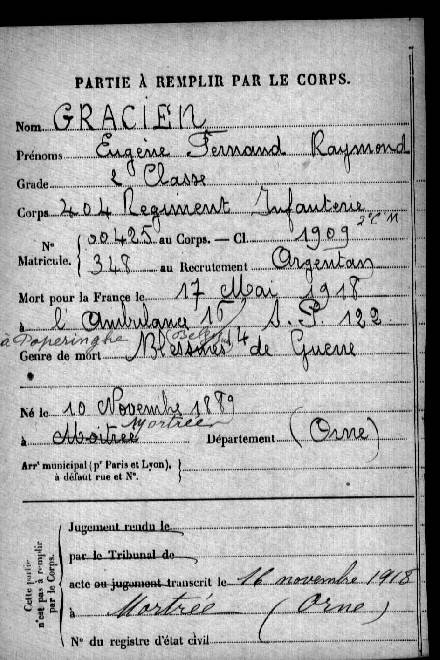 PARTIE À REMPLIR PAR LE CORPS.
Nom GRACIEN
Prénoms Eugène Fernand Raymond
Grade 2 Classe
Corps 404 Regiment Infanterie 2e C M
Nº 00425 au Corps. — Cl. 1909
Matricule. 348 au Recrutement Argentan
Mort pour la France le 17 Mai 1918
à l'Ambulance 15/ S. P. 122
à Poperinghe Belg.
Genre de mort Blessures de Guerre
Né le 10 Novembre 1889
Mortrée
à Moitrée Département (Orne)
Arrt municipal (pr Paris et Lyon),
à défaut rue et Nº.
Cette partie
n'est pas à remplir
par le Corps.
Jugement rendu le
par le Tribunal de
acte ou jugement transcrit le 16 novembre 1918
à Mortrée (Orne)
Nº du registre d'état civil